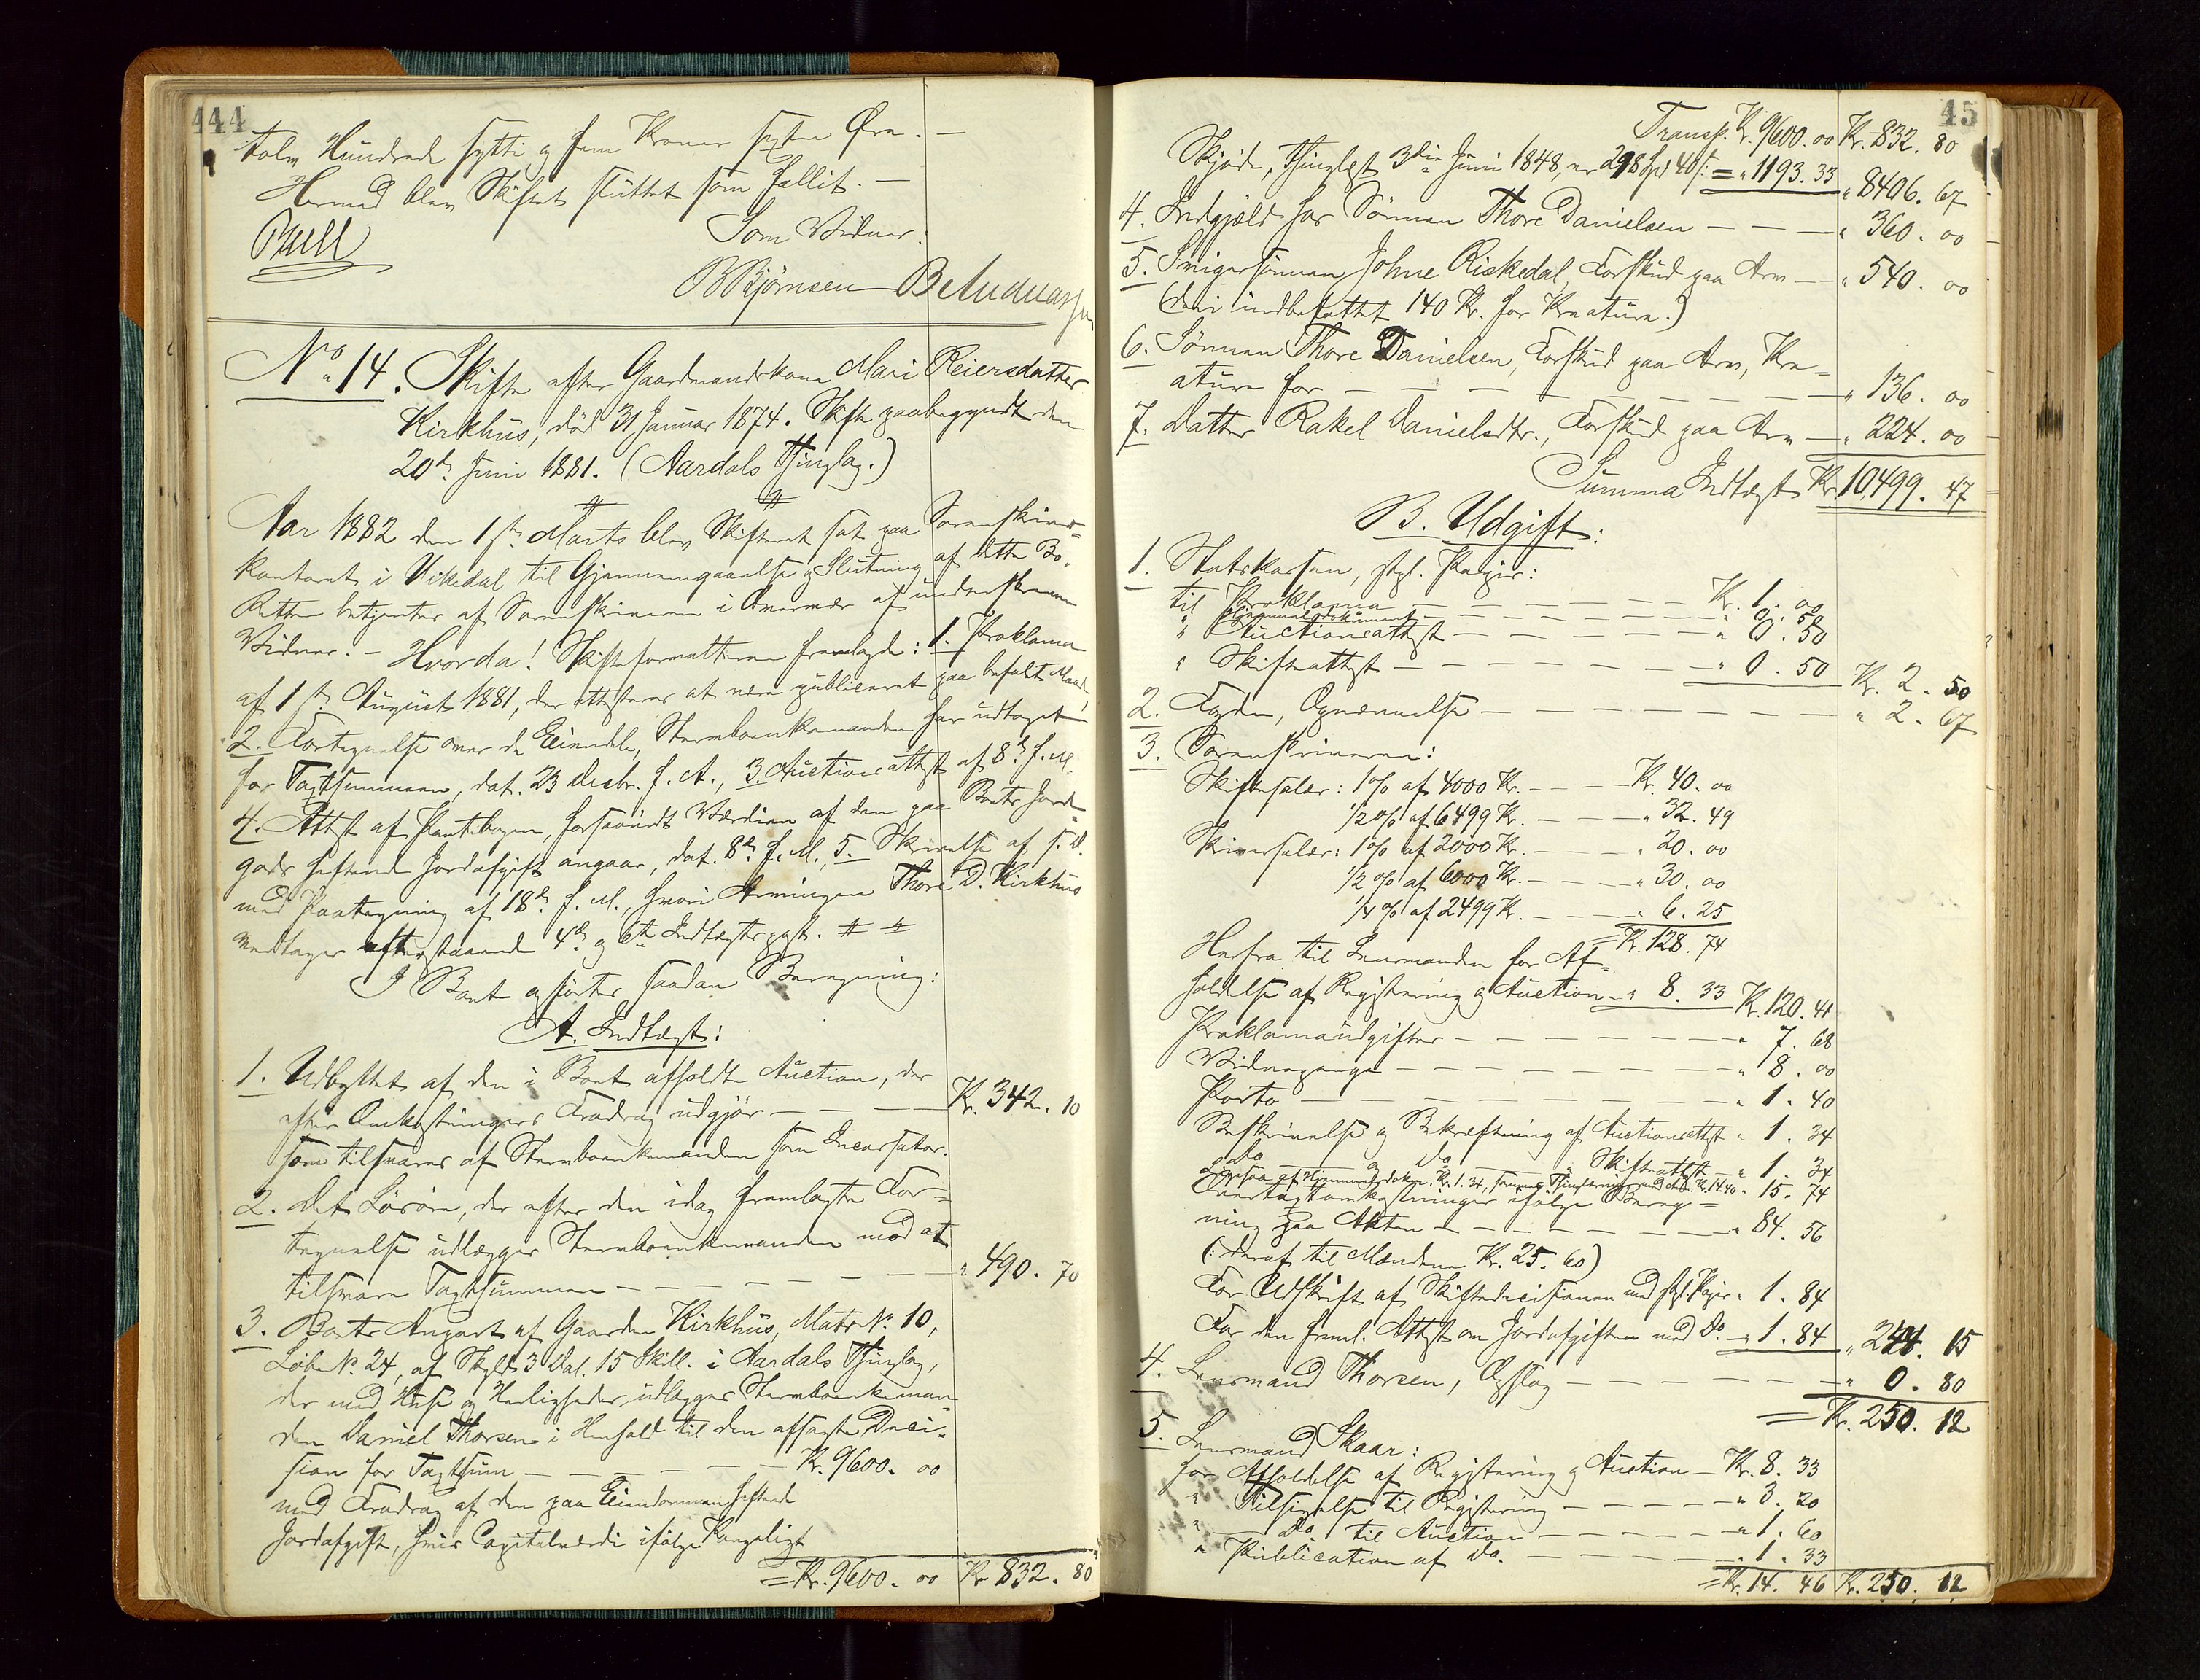 444
tolv Hundrede sytti og fem Kroner sytten Øre. —
Hermed blev Skiftet sluttet som fallit. —
Bull
Som Vidner:
B Bjørnsen
No. 14. Skifte efter Gaardmandskone Mari Reiersdatter
Kirkhus, død 31 Januar 1874. Skifte paabegyndt den
20de Juni 1881. (Aardals Thinglag.)
Aar 1882 den 1ste Marts blev Skifteret sat paa Sorenskriver=
kontoret i Vikedal til Gjennemgaaelse og Slutning af dette Bo.
Retten betjentes af Sorenskriveren i Overvær af underskrevne
Vidner. — Hvorda! Skifteforvalteren fremlagde: 1. Proklama
af 1ste August 1881, der attesteres at være publiceret paa befalet Maade,
2. Fortegnelse over de Eiendele, Stervboenkemanden har udtaget
for Taxtsummen, dat. 23 Decbr. f. A., 3. Auctionsattest af 8de f. M.
4. Attest af Pantebogen, forsaavidt Værdien af den paa Boets Jorde=
gods heftende Jordafgift angaar, dat. 8de f. M., 5. Skrivelse af s. D.
med Paategning af 18de f. M., hvori Arvingen Thore D. Kirkhus
vedtager efterstaaende 4de og 6te Indtægtspost.
I Boet opførtes saadan Beregning:
A. Indtægt:
1. Udbyttet af den i Boet afholdte Auction, der
efter Omkostningers Fradrag udgjør — — — Kr. 342. 10
som tilsvares af Stervboenkemanden som Incassator.
2. Det Løsøre, der efter den idag fremlagte For=
tegnelse udlægges Stervboenkemanden mod at
tilsvare Taxtsummen — — — — — " 490. 70
3. Boets Anpart af Gaarden Kirkhus, Matr. No. 10,
Løbe No. 24, af Skyld 3 Dal. 15 Skill. i Aardals Thinglag,
der med Huse og Herligheder udlægges Stervboenkeman=
den Daniel Thorsen i Henhold til den afsagte Deci=
sion for Taxtsum — — — — Kr. 9600. 00
med Fradrag af den paa Eiendommen heftende
Jordafgift, hvis Capitalværdi ifølge
= Kr. 9600. 00 Kr. 832. 80
45
Transp. Kr. 9600. 00 Kr. 832. 80
Skjøde, thinglæst 3die Juni 1848, er 298 Spd 40 s. = " 1193. 33 " 8406. 67
4. Indgjæld hos Sønnen Thore Danielsen — — — " 360. 00
5. Svigersønnen Johne Riskedal, Forskud paa Arv — " 540. 00
(deri indbefattet 140 Kr. for Kreature.)
6. Sønnen Thore Danielsen, Forskud paa Arv, Kre=
ature for — — — — — — — " 136. 00
7. Datter Rakel Danielsdtr., Forskud paa Arv — " 224. 00
Summa Indtægt Kr. 10,499. 47
B. Udgift:
1. Statskassen, stpl. Papir:
til Proklama — — — — — Kr. 1. 00
" — — — — — " 0. 50
" Auctionsattest — — — — " 0. 50
" Skifteattest — — — — — " 0. 50 Kr. 2. 50
2. Fogden, Opnævnelse — — — — — — " 2. 67
3. Sorenskriveren:
Skiftesalær: 1% af 4000 Kr. — — — Kr. 40. 00
1/2% af 6499 Kr. — — — " 32. 49
Skriversalær: 1% af 2000 Kr. — — — " 20. 00
1/2% af 6000 Kr. — — — " 30. 00
1/4% af 2499 Kr. — — — " 6. 25
= Kr. 128. 74
Herfra til Lensmanden for Af=
holdelse af Registrering og Auction — " 8. 33 Kr. 120. 41
Proklamaudgifter — — — — — " 7. 68
Vidnepenge — — — — — — " 8. 00
Porto — — — — — — — " 1. 40
Beskrivelse og Bekræftning af Auctionsattest " 1. 34
Do og Do " Skifteattest — " 1. 34
" 15. 74
Overtaxtomkostninger ifølge Bereg=
ning paa Akten — — — — — " 84. 56
(: deraf til Mændene Kr. 25. 60)
For Udskrift af Skiftedecisionen med stpl. Papir " 1. 84
For den freml. Attest om Jordafgiften med Do. — " 1. 84 " 244. 15
4. Lensmand Thorsen, Opslag — — — — — " 0. 80
= Kr. 250. 12
5. Lensmand Skaar:
for Afholdelse af Registrering og Auction — Kr. 8. 33
" Tilsigelse til Registrering — — — — " 3. 20
" Do til Auction — — — — " 1. 60
" Publication af Do. — — — — " 1. 33
= Kr. 14. 46 Kr. 250. 12